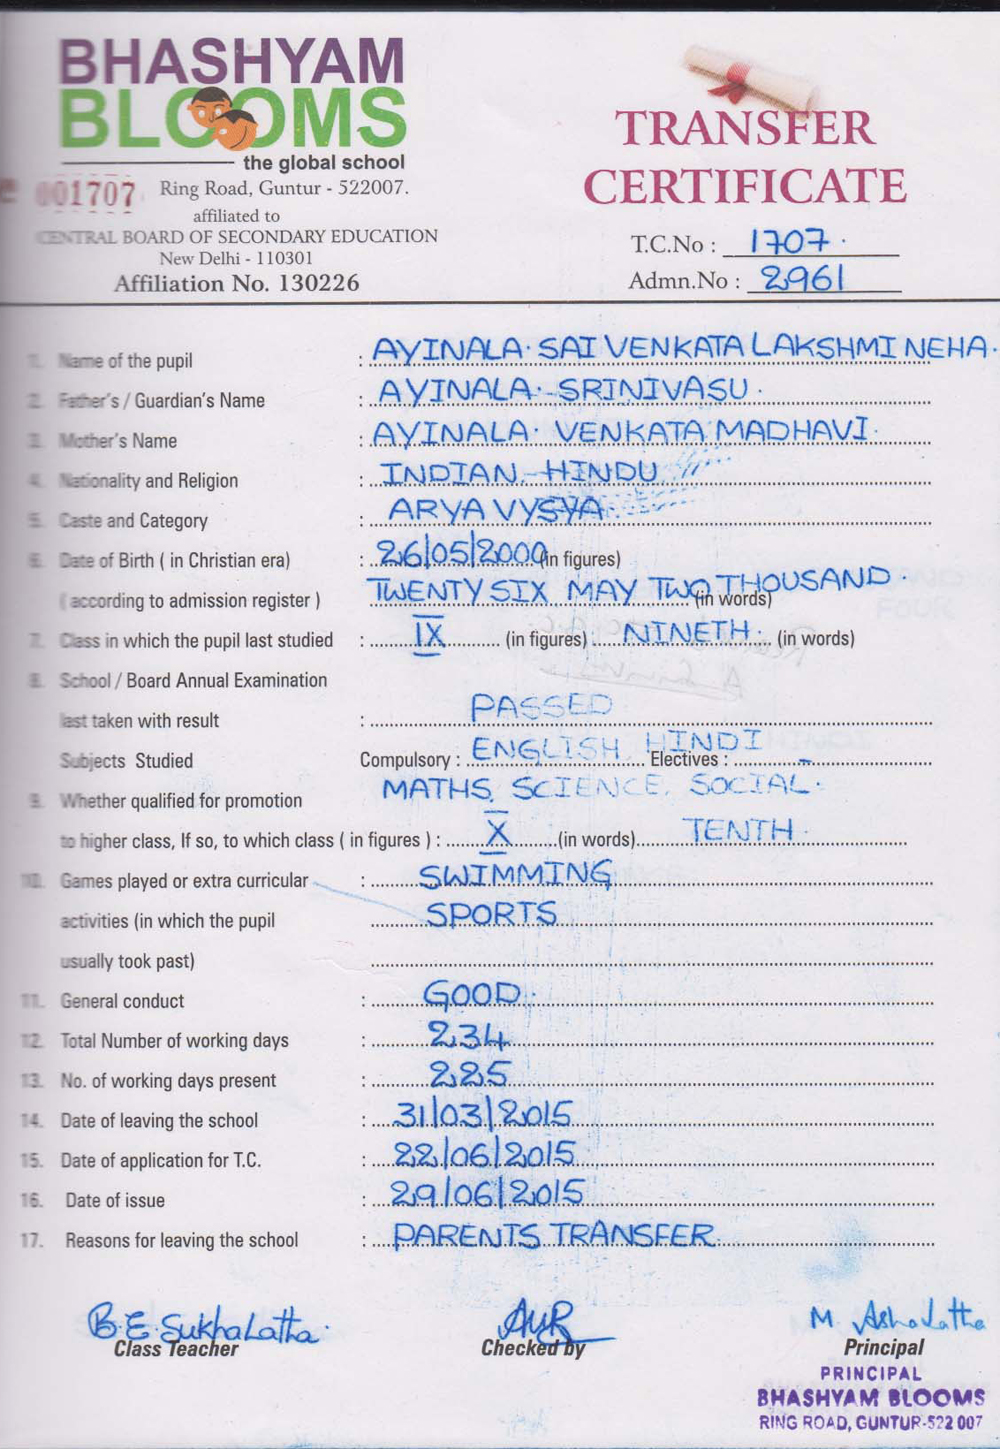 BHASHYAM
BLOOMS
the global school
001707 Ring Road, Guntur - 522007.
affiliated to
CENTRAL BOARD OF SECONDARY EDUCATION
New Delhi - 110301
Affiliation No. 130226
TRANSFER
CERTIFICATE
T.C.No : 1707.
Admn.No : 2961
1. Name of the pupil : AYINALA. SAI VENKATA LAKSHMI NEHA.
2. Father's / Guardian's Name : AYINALA. SRINIVASU.
3. Mother's Name : AYINALA. VENKATA MADHAVI.
4. Nationality and Religion : INDIAN - HINDU
5. Caste and Category : ARYA VYSYA.
6. Date of Birth ( in Christian era) : 26/05/2000 (in figures)
( according to admission register ) TWENTY SIX MAY TWO THOUSAND. (in words)
7. Class in which the pupil last studied : IX (in figures) NINETH. (in words)
8. School / Board Annual Examination
last taken with result : PASSED
Subjects Studied Compulsory : ENGLISH, HINDI Electives : -
MATHS, SCIENCE, SOCIAL.
9. Whether qualified for promotion
to higher class, If so, to which class ( in figures ) : X (in words) TENTH.
10. Games played or extra curricular : SWIMMING
activities (in which the pupil SPORTS
usually took past)
11. General conduct : GOOD.
12. Total Number of working days : 234
13. No. of working days present : 225
14. Date of leaving the school : 31/03/2015
15. Date of application for T.C. : 22/06/2015
16. Date of issue : 29/06/2015
17. Reasons for leaving the school : PARENTS TRANSFER
B.E. Sukha Latha. M. Asha Latha
Class Teacher Checked by Principal
PRINCIPAL
BHASHYAM BLOOMS
RING ROAD, GUNTUR-522 007